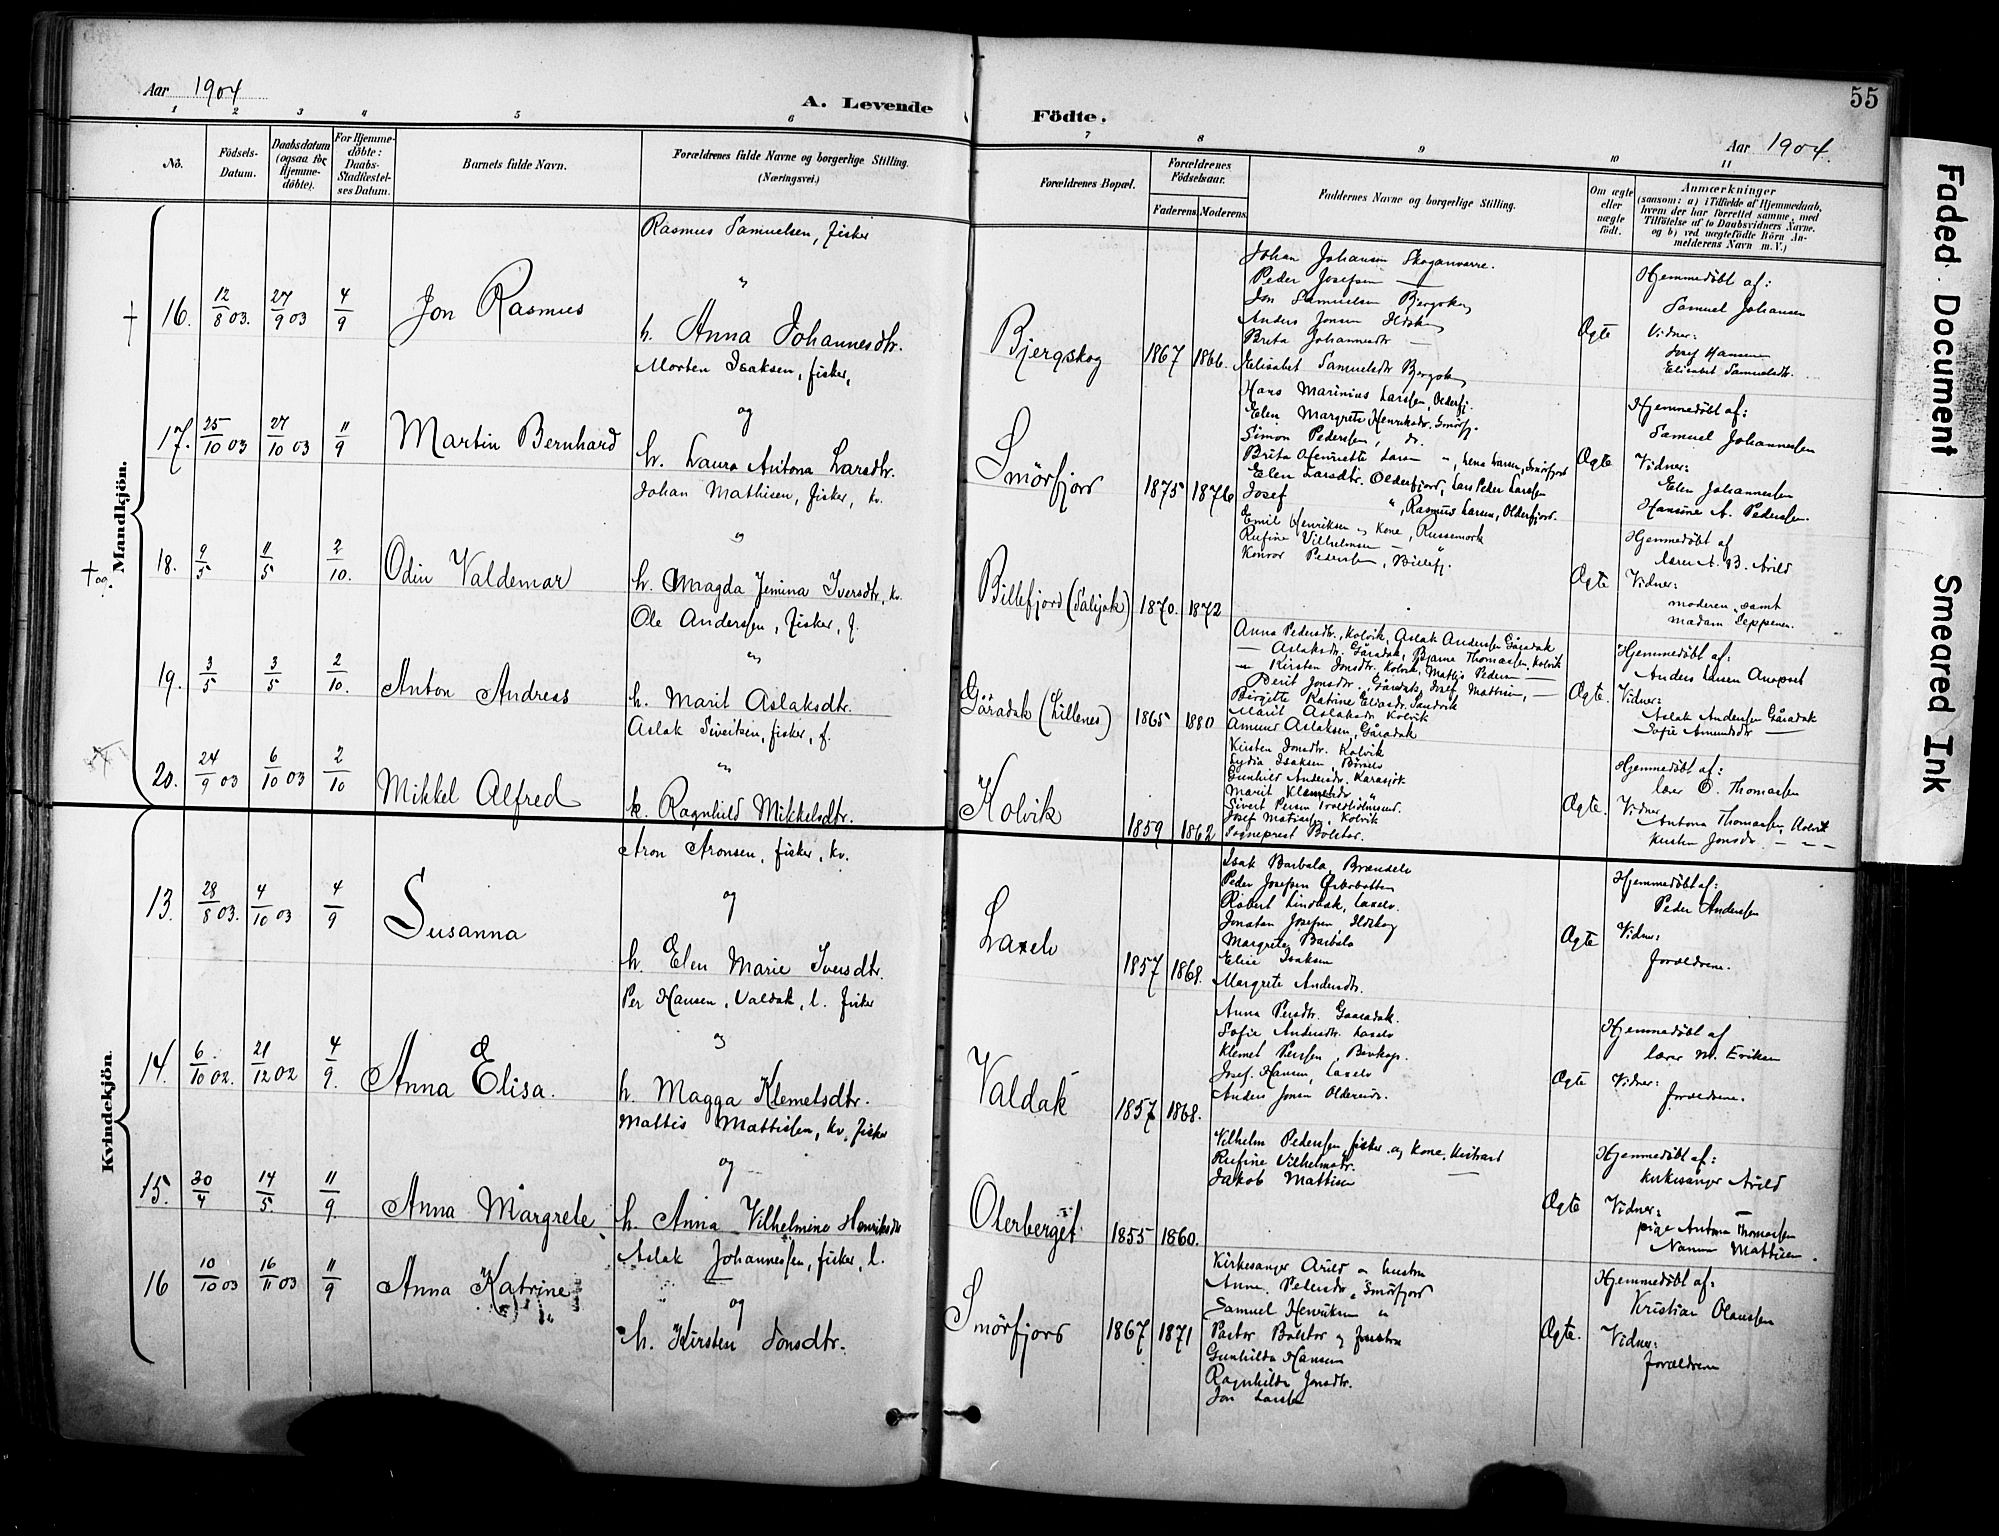 55
Aar 1904
A. Levende
Födte.
Aar 1904.
1 2 3 4 5 6 7 8 9 10 11
No.
Födsels-Datum.
Daabsdatum (ogsaa for Hjemme-döbte).
For Hjemme-döbte: Daabs-Stadfæstel-ses Datum.
Barnets fulde Navn.
Forældrenes fulde Navne og borgerlige Stilling. (Næringsvei.)
Forældrenes Bopæl.
Forældrenes Födselsaar.
Faderens. Moderens.
Faddernes Navne og borgerlige Stilling.
Om ægte eller uægte födt.
Anmærkninger
(saasom: a) i Tilfælde af Hjemmedaab,
hvem der har forrettet samme, med
Tilföielse af to Daabsvidners Navne.
og b) ved uægtefödte Börn An-
melderens Navn m. V.)
Mandkjön.
16. 12/8 03. 27/9 03 4/9 Jon Rasmus
Rasmus Samuelsen, fisker
"
h. Anna Johannesdtr.
Bjergskog 1867 1866.
Johan Johansen Skoganvarre.
Peder Josefsen —
Jon Samuelsen Bergskog
Anders Jonsen Ildskog
Brita Johannesdtr —
Elisabet Samuelsdtr Bergskog
Ægte
Hjemmedöbt af:
Samuel Johansen
Vidner:
Josef Hansen
Elisabet Samuelsdtr.
17. 25/10 03 27/10 03 11/9 Martin Bernhard
Morten Isaksen, fisker,
og
h. Laura Antona Larsdtr.
Smörfjord 1875 1876
Hans Marinius Larssen, Olderfj.
Elen Margrete Henriksdtr. Smörfj.
Simon Pederssen, do.
Brita Henriette Larsen ", Lena Larsen, Smörfjord
Elen Larsdtr. Olderfjord, Lars Peder Larssen
Josef ", Rasmus Larsen, Olderfjord.
Ægte
Hjemmedöbt af:
Samuel Johannessen
Vidner:
Elen Johannessen
Hansine A. Pederssen.
18. 9/5 11/5 2/10. Odin Valdemar
Johan Mathisen, fisker, kv.
og
h. Magda Jemina Iversdtr, kv.
Billefjord (Salijok) 1870. 1872
Emil Henriksen og Kone, Russemark
Rufine Vilhelmsen — "
Konrad Pederssen, Billefj.
Ægte
Hjemmedöbt af
lærer A. B. Arild
Vidner:
moderen samt
madam Seppenen.
19. 3/5 3/5 2/10. Anton Andreas
Ole Anderssen, fisker, f.
og
h. Marit Aslaksdtr.
Gåradak (Lillenes) 1865 1880
Anna Pedersdtr., Kolvik, Aslak Anderssen Gåradak
— Aslaksdtr. Gåradak, Bjarne Thomassen, Kolvik
— Kirsten Jonsdtr. Kolvik, Mattis Pedersen —
Berit Jonsdtr. Gåradak, Josef Mattisen, —
Birgitte Katrine Eliasdr. Sandvik
Marit Aslaksdr Kolvik
Amund Aslaksen, Gåradak
Ægte.
Hjemmedöbt af:
Anders Larsen
Vidner:
Aslak Anderssen Gåradak
Sofie Amundsdr —
20. 24/9 03 6/10 03 2/10 Mikkel Alfred
Aslak Sivertsen, fisker, f.
og
h. Ragnhild Mikkelsdtr.
Kolvik 1859 1862
Kirsten Jonsdtr. Kolvik
Lydia Isaksen, Börselv
Gunhild Andersdr. Karasjok
Marit Klemetsdr "
Sivert Persen
Josef Matissen, Kolvik
Sogneprest Bolstad.
Ægte.
Hjemmedöbt af:
lærer O. Thomassen
Vidner:
Antona Thomassen, Kolvik
Kirsten Jonsdr. — " —
Kvindekjön.
13. 28/8 03. 4/10 03 4/9 Susanna
Aron Aronsen, fisker, kv.
og
h. Elen Marie Iversdtr.
Laxelv 1857 1868.
Isak Barbala, Brændelv
Peder Josefsen Österbotten
Robert Lindbak, Laxelv.
Jonatan Josefsen, Ildskog
Margrete Barbala
Elise Isaksen
Margrete Andersdtr.
Ægte
Hjemmedöbt af:
Peder Anderssen
Vidner:
forældrene.
14. 6/10 02. 21/12 02 4/9. Anna Elisa.
Per Hansen, Valdak, l. fisker
og
h. Magga Klemetsdtr.
Valdak 1857 1868.
Anna Persdtr. Gaaradak.
Sofie Andersdtr. Laxelv
Klemet Perssen, Bevkop.
Josef Hansen, Laxelv
Anders Jonsen
Ægte
Hjemmedöbt af
lærer M. Eriksen
Vidner:
forældrene.
15. 30/4 14/5 11/9. Anna Margrete
Mattis Mattissen, kv, fisker
og
h. Anna Vilhelmine Henriksdtr
Oterberget 1855 1860.
Vilhelm Pederssen fisker og Kone, Kistrand
Rufine Vilhelmsdtr. —
Jakob Mattisen
Ægte
Hjemmedöbt af:
kirkesanger Arild
Vidner:
pige Antona Thomassen
Nanna Mattisen.
16 10/10 03 16/11 03 11/9 Anna Katrine
Aslak Johannessen, fisker, l.
og
h. Kirsten Jonsdtr.
Smörfjord 1867 1871
Kirkesanger Arild og hustru
Anne Pedersdr, Smörfjord
Samuel Henriksen "
Pastor Bolstad og frue
Gunhilda Hansen
Ragnhilda Jonsdtr.
Jon Larssen
Ægte.
Hjemmedöbt af:
Kristian Olaussen
Vidner:
forældrene
Faded Document
Smeared Ink